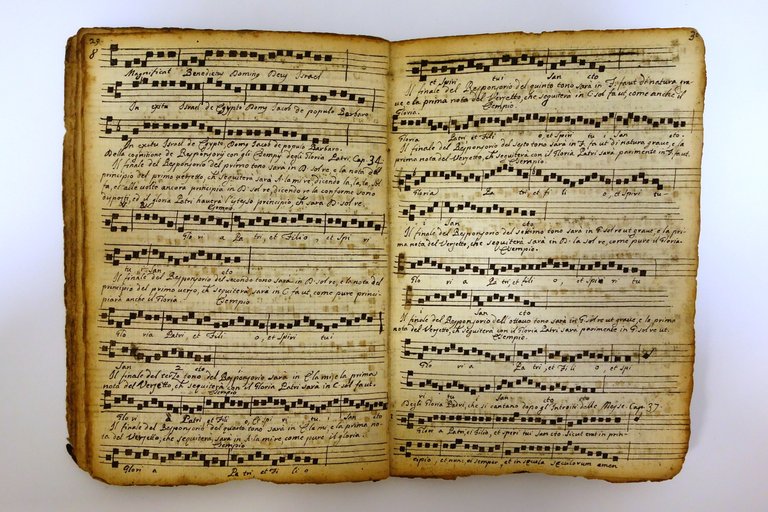 29
8
Magnificat Benedictus Dominus Deus Israel
In exitu Israel de Egypto Domus Jacob de populo Barbaro
In exitu Israel de Egypto, Domus Jacob de populo Barbaro.
Della cognitione de Responsorij con gli Esempij degli Gloria Patri. Cap. 34.
Il finale del Responsorio del primo tono sarà in D. sol re, e la nota del
principio del primo versetto, ch seguiterà sarà A. la mi re, dicendo la, la, la,
fa, et alle volte ancora principia in D. sol re, dicendo re
et il gloria Patri haverà l'istesso principio, sarà D. sol re.
Esempio.
Glo ri a Pa tri, et Filio, et Spi ri
tu San cto
Il finale del Responsorio del secondo tono sarà in D. sol re, e la nota del
principio del primo verso, ch seguiterà sarà in C fa ut, come pure princi-
pierà anche il Gloria. Esempio.
Gloria Patri, et Fili o, et Spiri tui
San cto
Il finale del terzo tono del Responsorio sarà in E la mi, e la prima
nota del Versetto, ch seguiterà con il Gloria Patri sarà in C. sol fa ut.
Esempio
Glori a Patri et Fili o, et Spiri tu i San cto
Il finale del Responsorio del quarto tono sarà in E la mi, e la prima no-
ta del Versetto, che seguiterà sarà in A. la mi re come pure il gloria.
Esempio
Glori a Pa tri, et Fi li o
3
et Spiri tui San cto
Il finale del Responsorio del quinto tono sarà in F. fa ut di natura gra
ve e la prima nota del Versetto, che seguiterà in C sol fa ut, come anche il
Gloria. Esempio
Gloria Patri et Fili o et Spiri tu i San cto.
Il finale del Responsorio del sesto tono sarà in F. fa ut di natura grave, e la
prima nota del Versetto, ch seguiterà con il Gloria Patri sarà parimente in F. fa ut.
Esempio
Gloria Pa tri, et fi li o, et Spiri tu
i San cto
Il finale del Responsorio del settimo tono sarà in G sol re ut grave, e la pri-
ma nota del Versetto, che seguiterà sarà in D. la sol re, come pure il Gloria.
Esempio.
Glo ri a Pa tri, et fili o, et Spi ri tu
i San cto
Il finale del Responsorio dell'ottavo tono sarà in G sol re ut grave, e la prima
nota del Versetto, ch seguiterà con il Gloria Patri sarà parimente in G. sol re ut.
Esempio.
Glo ri a Pa tri, et Fi li o, et Spi
ri tu i San cto
Degli Gloria Patri, che si cantano dopo gl' Introiti delle Messe. Cap. 37.
Glori a Patri, et Filio, et Spiri tui San cto Sicut erat in prin-
cipio, et nunc, et semper, et in secula seculorum amen